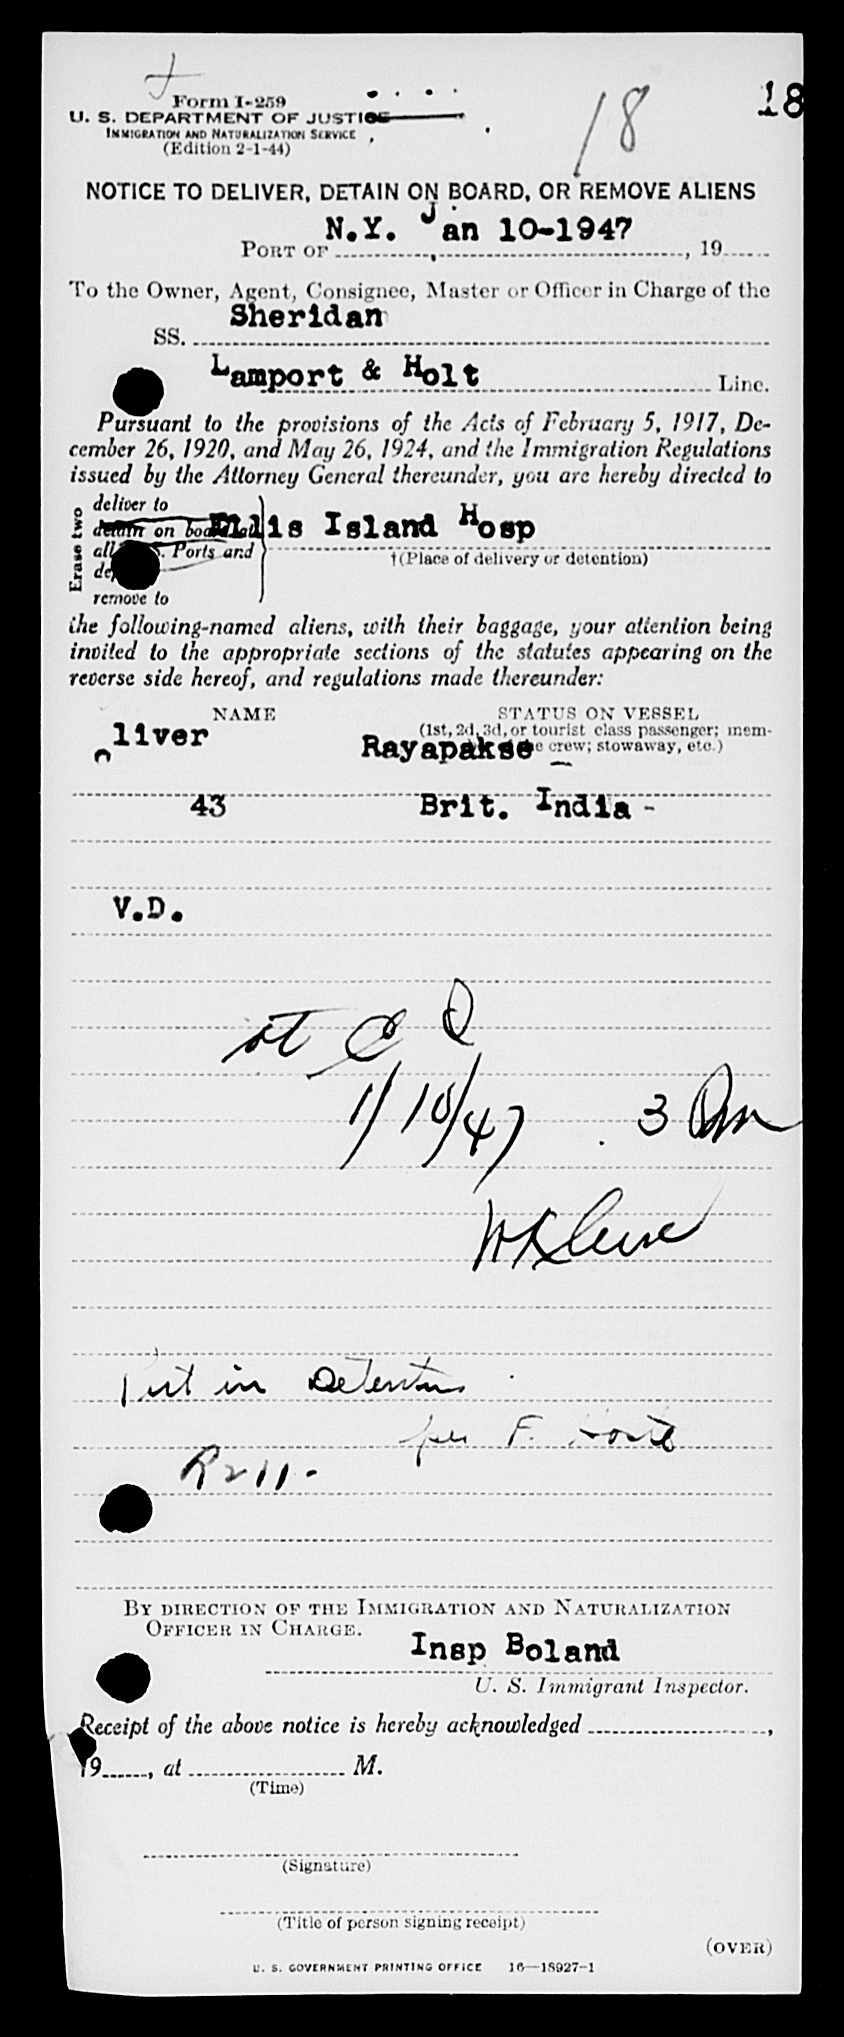 Form I-259
18
18
U. S. DEPARTMENT OF JUSTICE
IMMIGRATION AND NATURALIZATION SERVICE
(Edition 2-1-44)
NOTICE TO DELIVER, DETAIN ON BOARD, OR REMOVE ALIENS
N.Y. Jan 10-1947
PORT OF , 19
To the Owner, Agent, Consignee, Master or Officer in Charge of the
Sheridan
SS.
Lamport & Holt Line.
Pursuant to the provisions of the Acts of February 5, 1917, De-
cember 26, 1920, and May 26, 1924, and the Immigration Regulations
issued by the Attorney General thereunder, you are hereby directed to
Erase two
deliver to
detain on board at Ellis Island Hosp
all U. S. Ports and
†(Place of delivery or detention)
remove to
the following-named aliens, with their baggage, your attention being
invited to the appropriate sections of the statutes appearing on the
reverse side hereof, and regulations made thereunder:
NAME STATUS ON VESSEL
(1st, 2d, 3d, or tourist class passenger; mem-
Oliver Rayapakse crew; stowaway, etc.)
43 Brit. India -
V.D.
1/10/47 3 Pm
Put in Detention
per F.
R211-
BY DIRECTION OF THE IMMIGRATION AND NATURALIZATION
OFFICER IN CHARGE.
Insp Boland
U. S. Immigrant Inspector.
Receipt of the above notice is hereby acknowledged ,
19 , at M.
(Time)
(Signature)
(Title of person signing receipt)
(OVER)
U. S. GOVERNMENT PRINTING OFFICE 16—18927-1